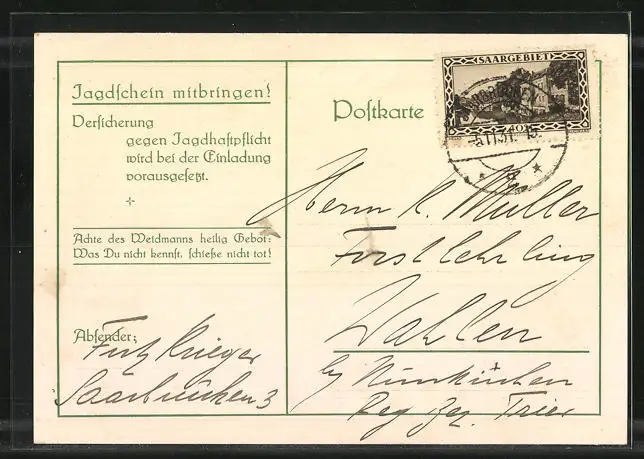 Jagdschein mitbringen!
Versicherung
gegen Jagdhaftpflicht
wird bei der Einladung
vorausgesetzt.
Achte des Weidmanns heilig Gebot:
Was Du nicht kennst, schieße nicht tot!
Absender:
Fritz Krieger
Saarbrücken 3
Postkarte
SAARGEBIET
40
-5.11.31.
Herrn K. Müller
Forstlehrling
Wahlen
by Nunkirchen
Reg Bez. Trier